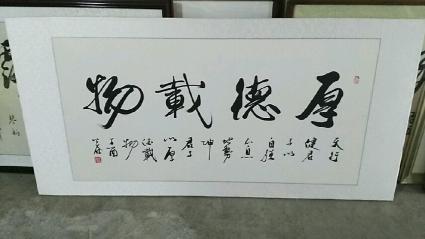 厚德載物
天行
健君
子以
自强
不息
地勢
坤
君子
以厚
德載
物
丁酉